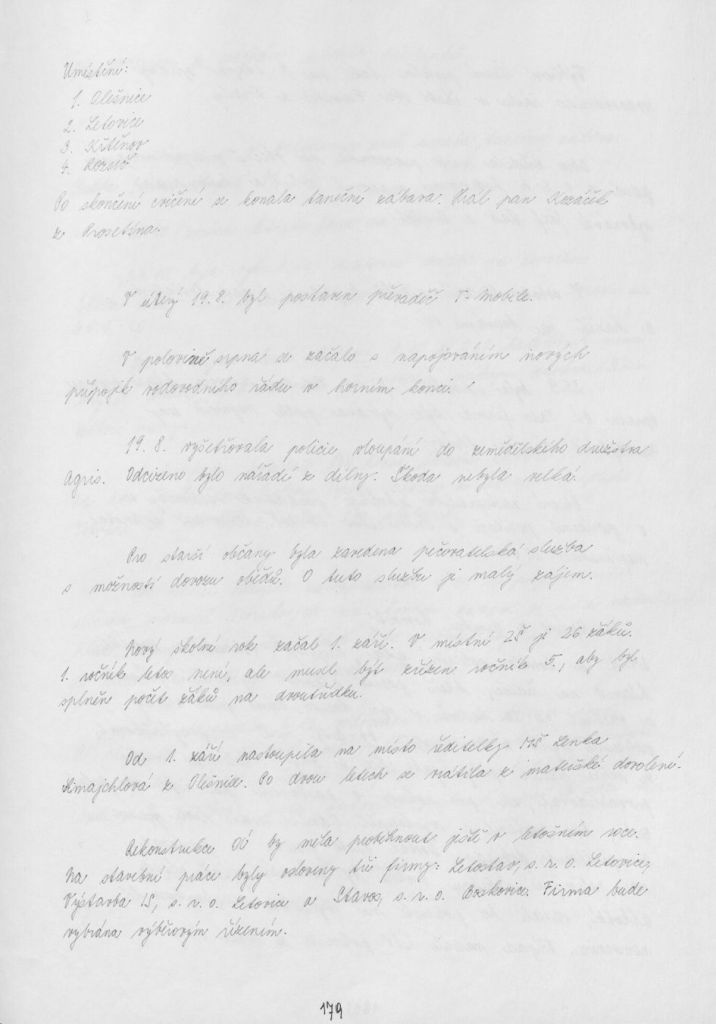 Umístění:
1. Olešnice
2. Letovice
3. Křtěnov
4. Rozseč
Po skončení cvičení se konala taneční zábava. Hrál pan Kozáček
z Prosetína.
V úterý 19.8. byl postaven převáděč T-Mobile.
V polovině srpna se začalo s napojováním nových
přípojek vodovodního řádu v horním konci.
19.8. vyšetřovala policie vloupání do zemědělského družstva
Agris. Odcizeno bylo nářadí z dílny. Škoda nebyla velká.
Pro starší občany byla zavedena pečovatelská služba
s možností dovozu obědů. O tuto službu je malý zájem.
Nový školní rok začal 1. září. V místní ZŠ je 26 žáků.
1. ročník letos není, ale musel být zřízen ročník 5., aby byl
splněn počet žáků na dvoutřídku.
Od 1. září nastoupila na místo ředitelky MŠ Lenka
z Olešnice. Po dvou letech se vrátila z mateřské dovolené.
Rekonstrukce OÚ by měla proběhnout ještě v letošním roce.
Na stavební práce byly osloveny tři firmy: Letostav, s.r.o. Letovice,
Výstavba IS, s.r.o. Letovice a Stavos, s.r.o. Boskovice. Firma bude
vybrána výběrovým řízením.
179